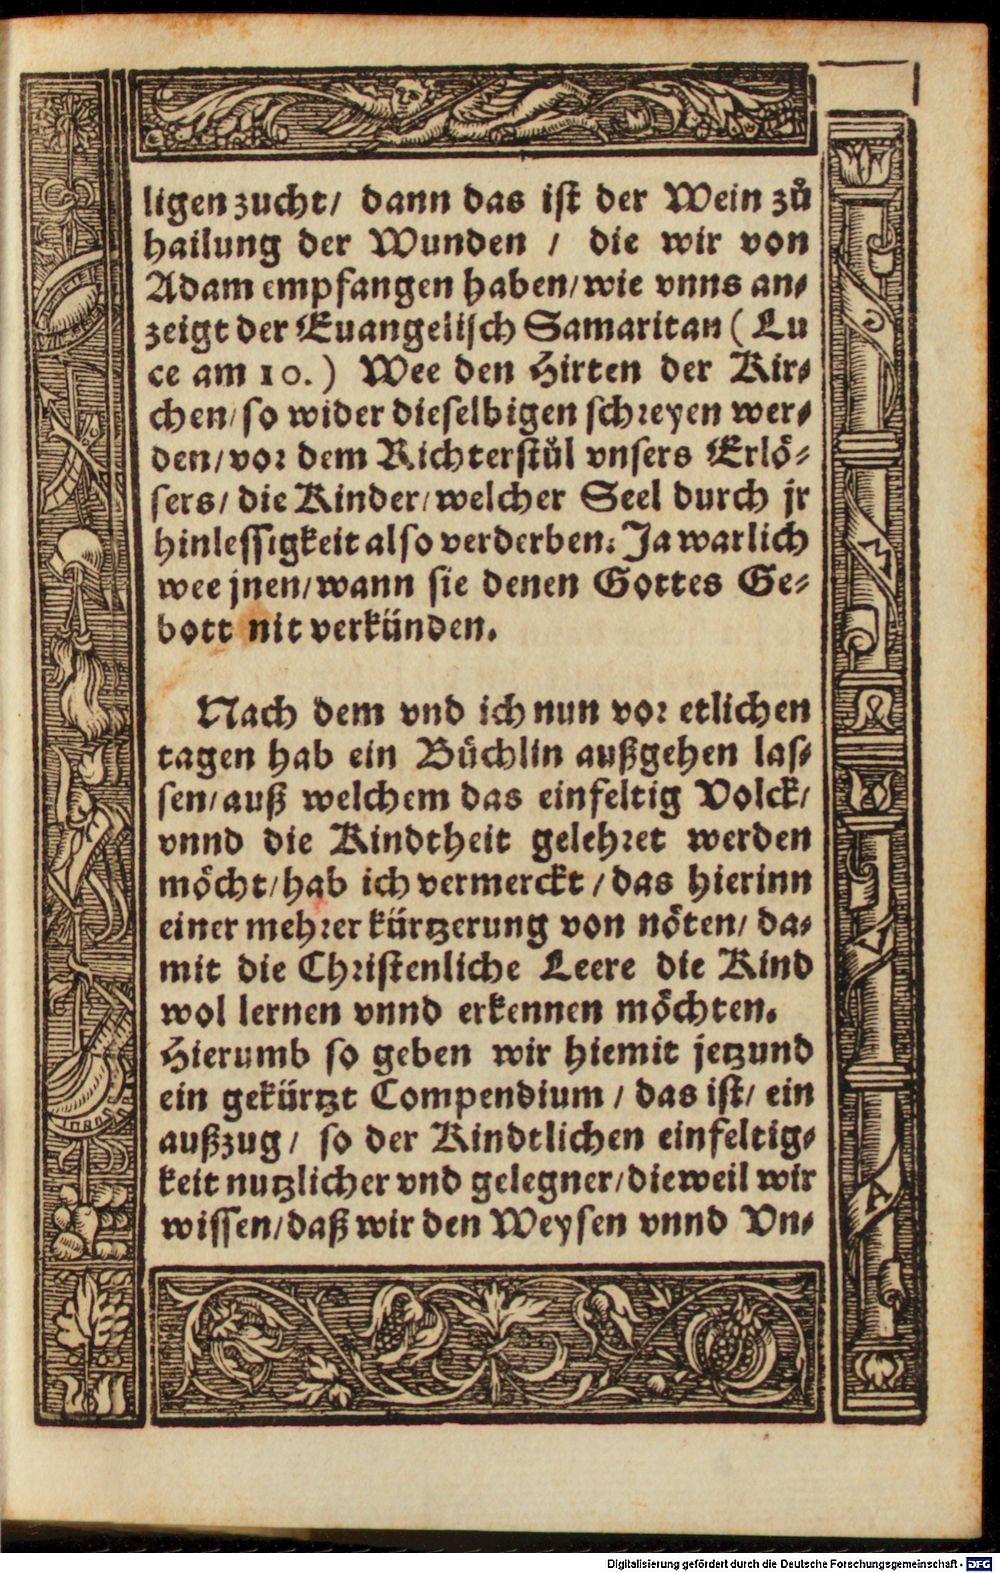 ligen zucht/ dann das ist der Wein zů
hailung der Wunden / die wir von
Adam empfangen haben/ wie vnns an⸗
zeigt der Euangelisch Samaritan ( Lu
ce am 10. ) Wee den Hirten der Kir⸗
chen/ so wider dieselbigen schreyen wer⸗
den/ vor dem Richterstůl vnsers Erlö⸗
sers/ die Kinder/ welcher Seel durch jr
hinlessigkeit also verderben: Ja warlich
wee jnen/ wann sie denen Gottes Ge⸗
bott nit verkünden.
Nach dem vnd ich nun vor etlichen
tagen hab ein Büchlin außgehen las⸗
sen/ auß welchem das einfeltig Volck/
vnnd die Kindtheit gelehret werden
möcht/ hab ich vermerckt / das hierinn
einer mehrer kürtzerung von nöten/ da⸗
mit die Christenliche Leere die Kind
wol lernen vnnd erkennen möchten.
Hierumb so geben wir hiemit jetzund
ein gekürtzt Compendium / das ist/ ein
außzug / so der Kindtlichen einfeltig⸗
keit nutzlicher vnd gelegner/ dieweil wir
wissen/ daß wir den Weysen vnnd Vn⸗
M
A
V
A
Digitalisierung gefördert durch die Deutsche Forschungsgemeinschaft - DFG